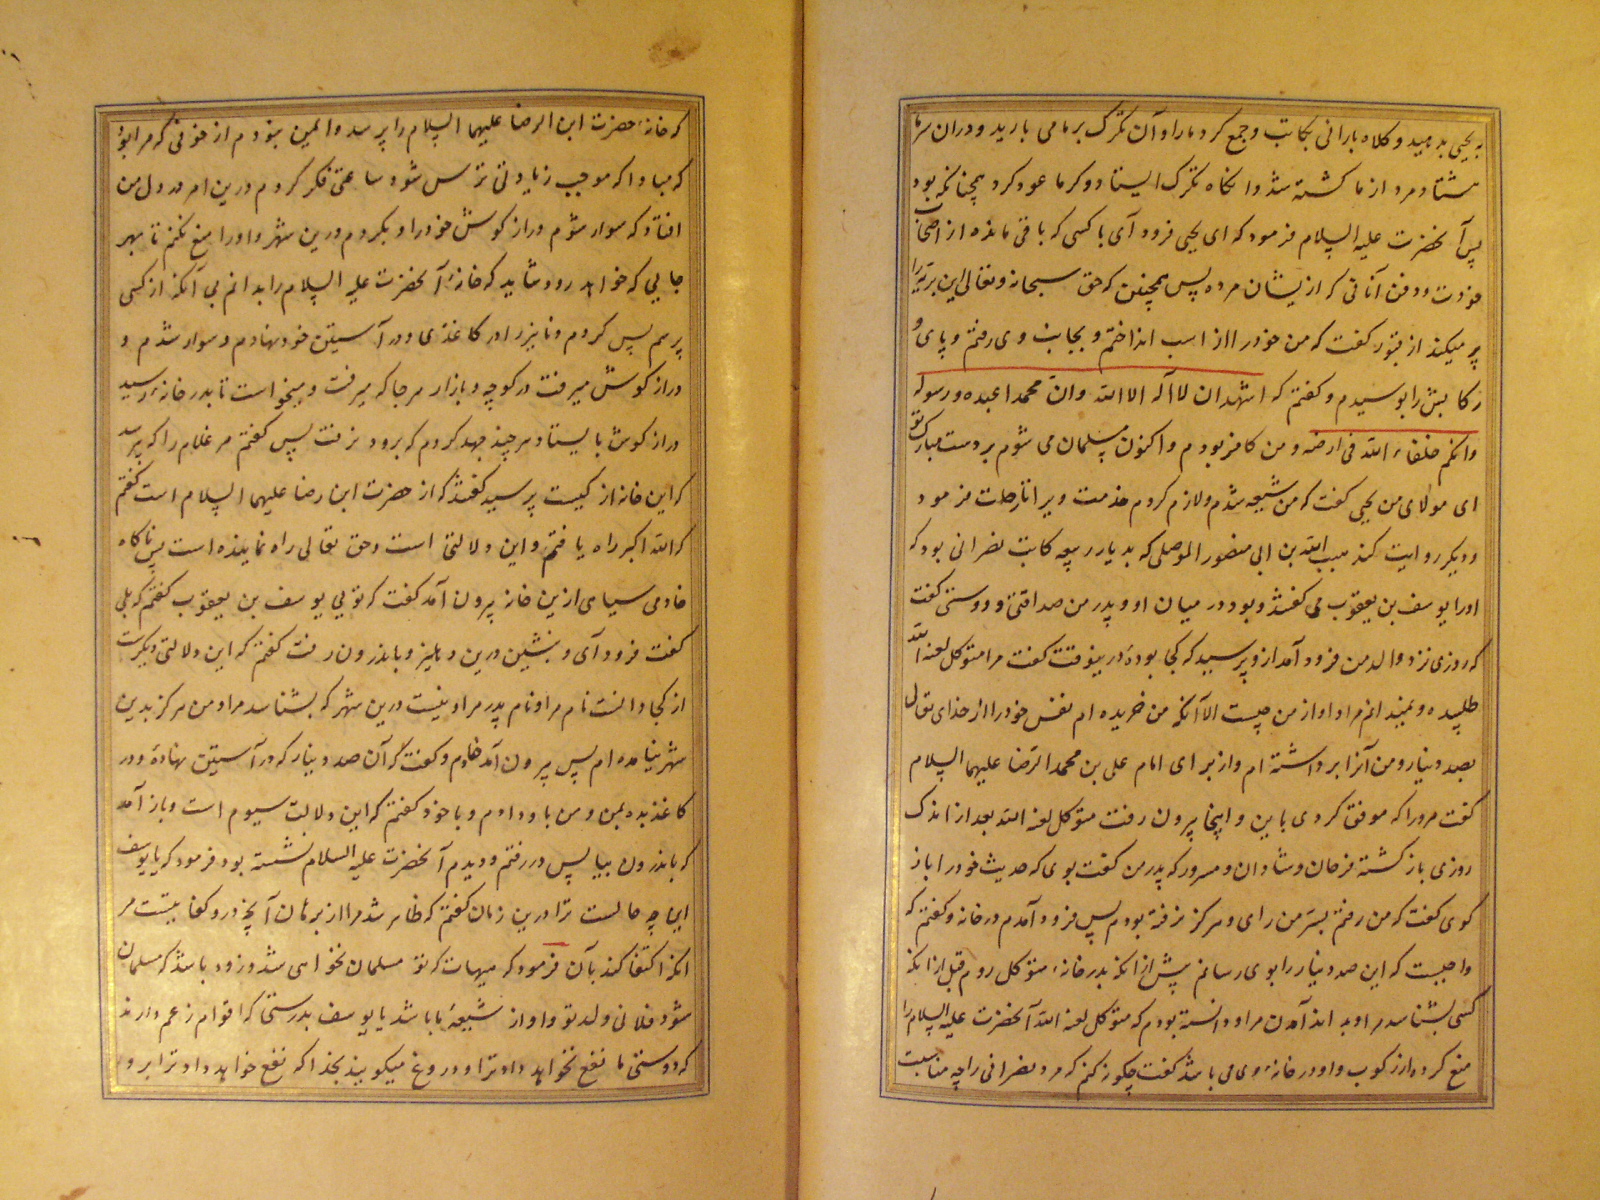 به یحیی بدهید و کلاه بارانی بکاتب و جمع کرد ما را و آن تگرگ بر ما می بارید و در آن سرما
هشتاد مرد از ما کشته شد و انکاه تگرک ایستاد و کرما عود کرد همچنانکه بود
پس آنحضرت علیه السلام فرمود که ای یحیی فرود آی با کسی که باقی مانده از اصحاب
خودت و دفن آنانی که ازیشان مرده پس همچنین که حق سبحانه و تعالی این بریه را
پر میکند از قبور کفت که من خود را از اسب انداختم و بجانب وی رفتم و پای و
رکابش را بوسیدم و کفتم که اشهد ان لا اله الا الله و ان محمدا عبده و رسوله
و انکم خلفاء الله فی ارضه و من کافر بودم و اکنون مسلمان می شوم بر دست مبارک تو
ای مولای من یحیی کفت که من شیعه شدم و لازم کردم خدمت ویرا تا رحلت فرمود
و دیکر روایت کند هبب الله بن ابی منصور الموصلی که بدیار ربیعه کاتب نصرانی بود که
او را یوسف بن یعقوب می کفتند و بود در میان او و پدر من صداقتی و دوستی کفت
که روزی نزد والد من فرود آمد ازو پرسید که کجا بودهٔ درینوقت کفت مرا متوکل لعنه الله
طلبیده و نمیدانم مراد او از من چیست الا آنکه من خریده ام نفس خود را از خدای تعالی
بصد دینار و من آنرا برداشته ام و از برای امام علی بن محمد الرضا علیهما السلام
کفت مرورا که موفق کردی باین و اینجا بیرون رفت متوکل لعنه الله بعد از اندک
روزی باز کشته فرحان و شادان و مسرور که پدر من کفت بوی که حدیث خود را باز
کوی کفت که من رفتم بسر من رای و هرکز نرفته بودم پس فرود آمدم در خانه و کفتم که
واجبست که این صد دینار را بوی رسانم پیش از انکه بدر خانهٔ متوکل روم قبل از انکه
کسی بشناسد مرا و به اند آمدن مرا و دانسته بودم که متوکل لعنه الله آنحضرت علیه السلام را
منع کرده از رکوب و او در خانهٔ وی می باشد کفت چکونه کنم که مرد نصرانی را چه مناسبت
که خانهٔ حضرت ابن الرضا علیهما السلام را پرسد و ایمن نبودم از خوفی که مرا بود
که مبادا که موجب زیادتی ترس شود ساعتی فکر کردم درین امر در دل من
افتاد که سوار شوم دراز کوش خود را و بکردم درین شهر و او را منع نکنم تا بهر
جایی که خواهد رود شاید که خانهٔ آنحضرت علیه السلام را بدانم بی آنکه از کسی
پرسم پس کردم دنانیر را در کاغذی و در آستین خود نهادم و سوار شدم و
دراز کوش میرفت در کوچه و بازار هر جا که میرفت و میخواست تا بدر خانهٔ رسید
دراز کوش بایستاد هر چند جهد کردم که برود نرفت پس کفتم مر غلام را که بپرسد
که این خانه از کیست پرسید کفتند که از حضرت ابن رضا علیهما السلام است کفتم
که الله اکبر راه یافتم و این دلالتی است و حق تعالی راه نماینده است پس ناکاه
خادمی سیاهی ازین خانه بیرون آمد کفت که تویی یوسف بن یعقوب کفتم که بلی
کفت فرود آی و بنشین درین دهلیز و باندرون رفت کفتم که این دلالتی دیکرست
از کجا دانست نام مرا و نام پدر مرا و نیست درین شهر که بشناسد مرا و من هرکز بدین
شهر نیامده ام پس بیرون آمد خادم و کفت که آن صد دینار که در آستین نهادهٔ و در
کاغذ بده بمن و من باو دادم و با خود کفتم که این دلالت سیوم است و باز آمد
که باندرون بیا پس در رفتم و دیدم آنحضرت علیه السلام نشسته بود فرمود که یا یوسف
این چه حالست ترا درین زمان کفتم که ظاهر شد مرا از برهان آنچه درو کفایتست مر
انکه اکتفا کند بآن فرمود که هیهات که تو مسلمان نخواهی شد و زود باشد که مسلمان
شود فلانی ولد تو و او از شیعهٔ ما باشد یا یوسف بدرستی که اقوام زعم دارند
که دوستی ما نفع نخواهد داد ترا و دروغ میکویند بخدا که نفع خواهد داد ترا برو